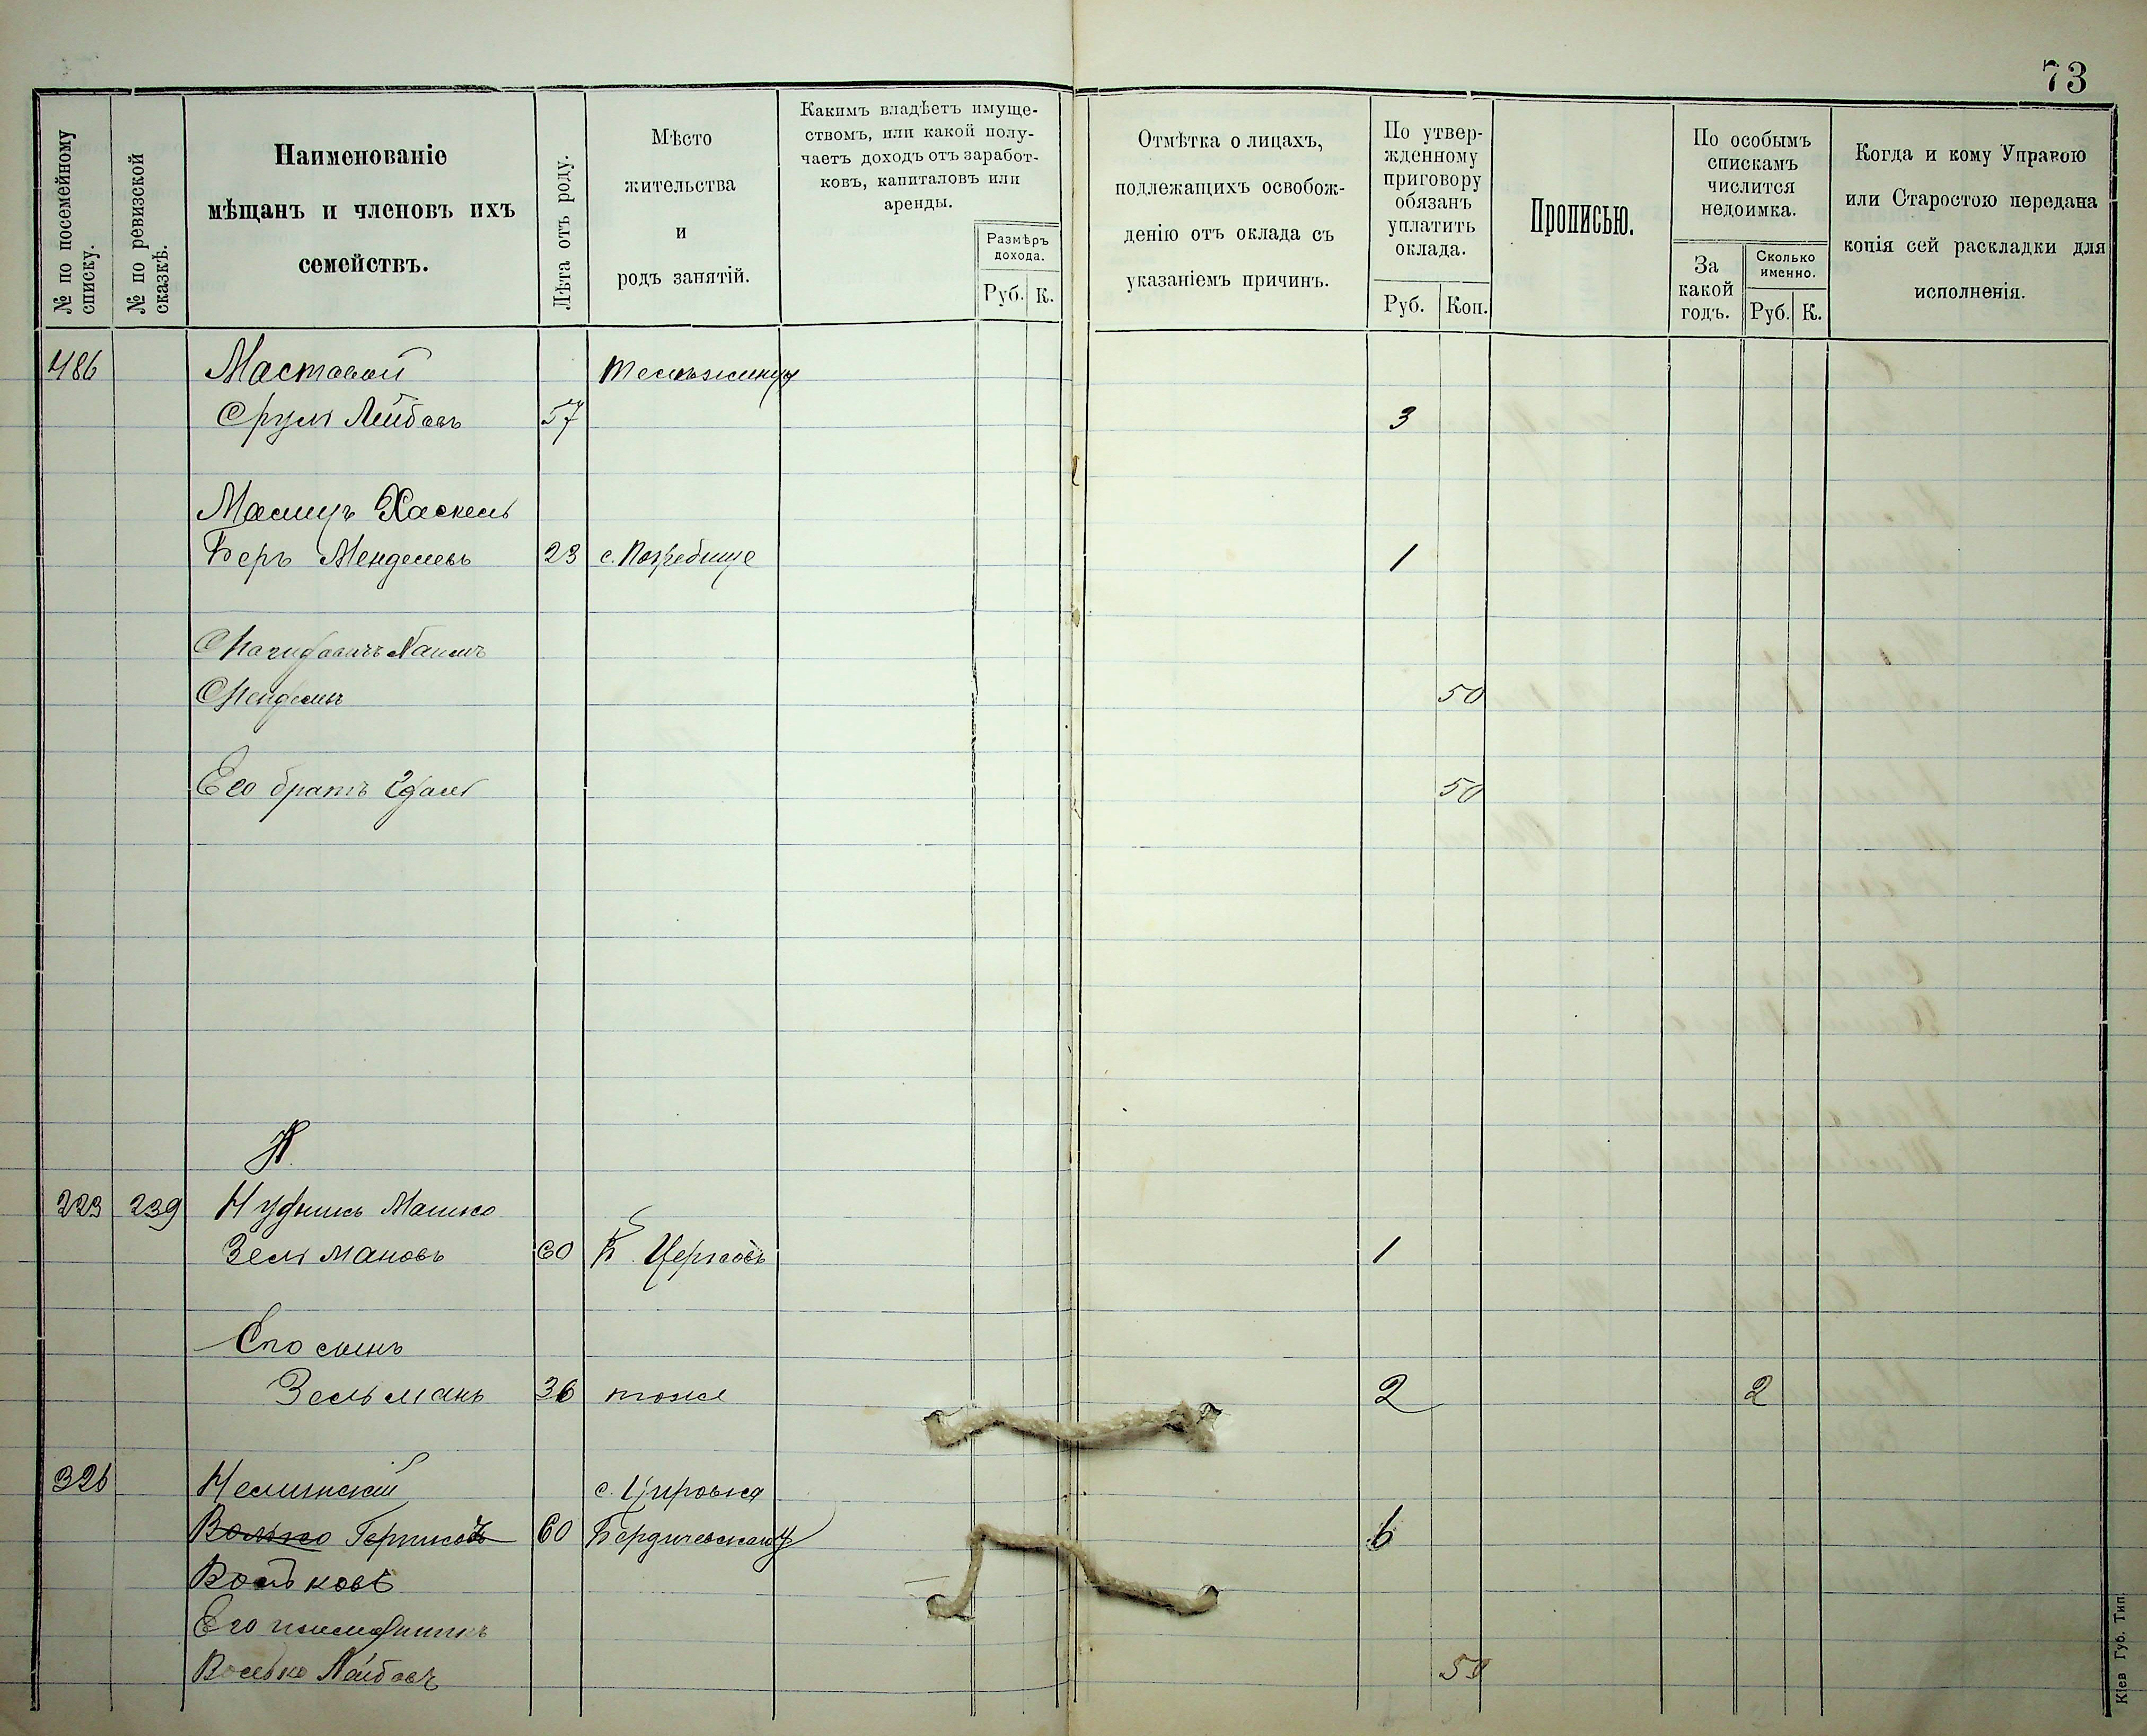 73
№ по посемейному списку.
№ по ревизской сказкѣ.
Наименованіе
мѣщанъ и членовъ ихъ
семействъ.
Лѣта отъ роду.
Мѣсто
жительства
и
родъ занятій.
Какимъ владѣетъ имуще-
ствомъ, или какой полу-
чаетъ доходъ отъ заработ-
ковъ, капиталовъ или
аренды.
Размѣръ
дохода.
Руб. К.
Отмѣтка о лицахъ,
подлежащихъ освобож-
денію отъ оклада съ
указаніемъ причинъ.
По утвер-
жденному
приговору
обязанъ
уплатить
оклада.
Руб. Коп.
Прописью.
По особымъ
спискамъ
числится
недоимка.
За
какой
годъ.
Сколько
именно.
Руб. К.
Когда и кому Управою
или Старостою передана
копія сей раскладки для
исполненія.
486 Мастовой
Сруль Лейбовъ 57 3
Хаскель
Беръ Менделевъ 23 с. Погребище 1
Мендель
50
Его братъ 50
Н
223 239 Мошко
Зельмановъ 60 Б. Церковь 1
Его сынъ
Зельманъ 36 тоже 2 2
326
Волько Гершковъ 60 6
Вольковъ
Его племянникъ
Волько Лейбовъ 50
Кіев Губ. Тип.